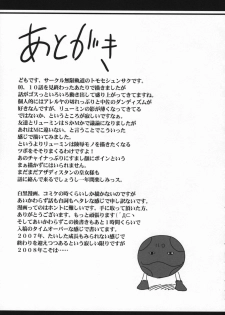 あとがき
どもです、サークル無限軌道のトモセシュンサクです。
00、10話を見終わったあたりで描けましたが
話がズズっといろいろ動き出して盛り上がってきてますね。
個人的にはアレルヤの切れっぷりと中佐のダンディズムが
好きなんですが、リューミンの影が薄くなってきてる
ではないか、というところが寂しいですなぁ。
友達とリューミンはSかMかで議論になりましたが
あれはMに違いない、と言うことでこういった
感じで描いてみました。
というよりリューミンには陵辱モノを描きたくなる
ツボをそそりまくるわけですよ！
あのチャイナっぷりにすし頭にボインとくれば
まぁ描かずにはいられません。
まだまだアザディスタンの皇女様も
話に絡んで来るでしょうし一年間楽しみっス。
白黒漫画、コミケの時くらいしか描かないので
あいかわらず話も台詞もヘタレな感じで申し訳ないです。
漫画ってのはホントに難しいです。手に取って頂いた方、
ありがとうございます。もっと頑張ります！
そしてあいかわらずこれを書き終わると後1時間くらいで
入稿のタイムオーバーな感じですが。
2007年、たいした成長もみられない感じで
終わりを迎えつつあるという寂しい限りですが
2008年こそは……